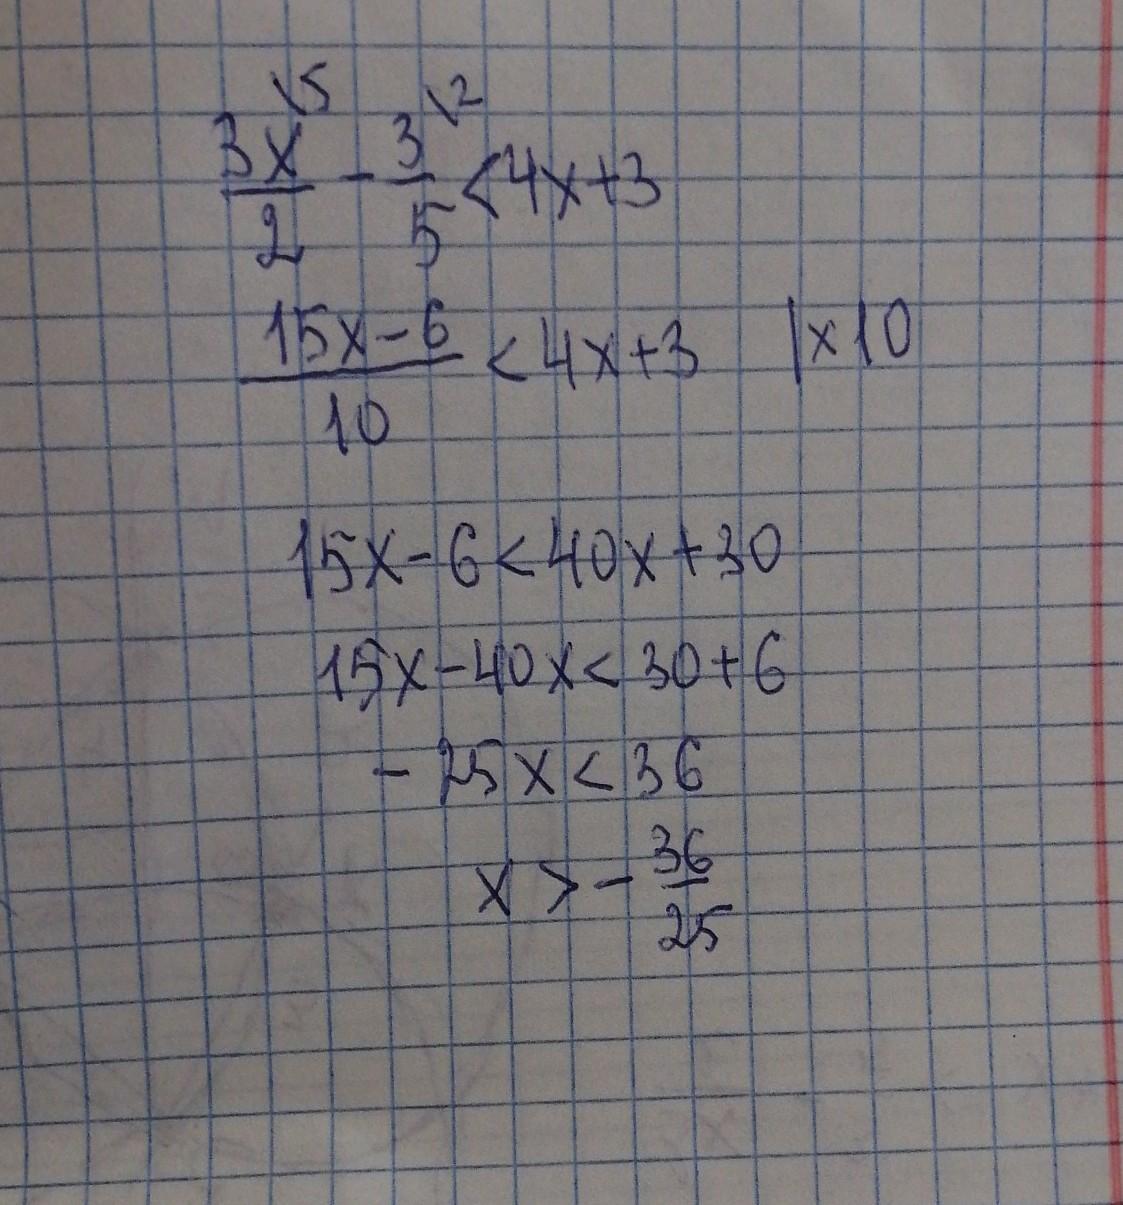 3x\5/2 - 3\2/5 < 4x+3
15x-6/10 < 4x+3 |x10
15x-6<40x+30
15x-40x<30+6
-25x<36
x > -36/25